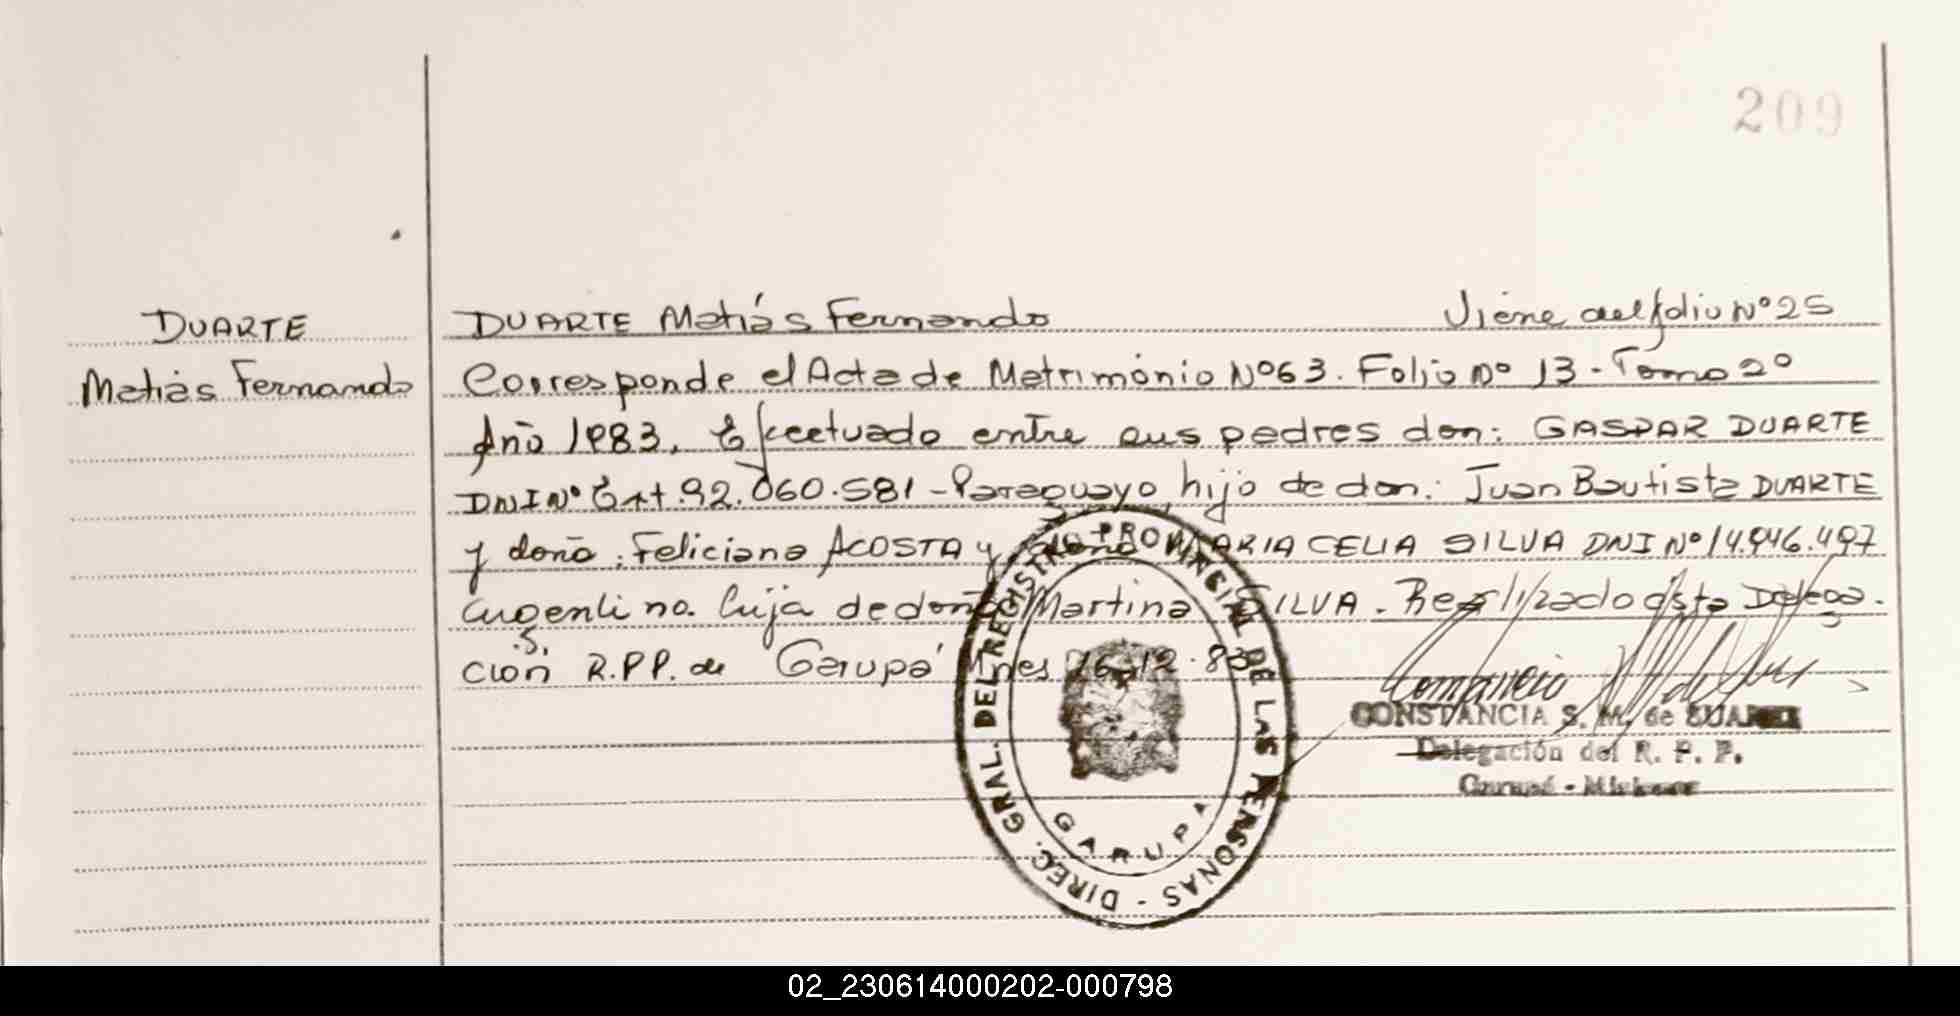 209
DUARTE
Matiás Fernando
DUARTE Matiás Fernando Viene del folio Nº 25
Corresponde el Acta de Matrimónio Nº 63. Folio Nº 13 - Tomo 2º
Año 1983. Efectuado entre sus padres don: GASPAR DUARTE
DNI Nº Ext. 92.060.581 - Paraguayo, hijo de don: Juan Bautista DUARTE
y doña: Feliciana ACOSTA y doña MARIA CELIA SILVA DNI Nº 14.946.497
Argentina. hija de doña Martina SILVA. Realizado ésta Delega-
ción R.P.P. de Garupá Mnes 16-12-83
CONSTANCIA S. M. de SUAREZ
Delegación del R. P. P.
Garupá - Misiones
DIREC. GRAL. DEL REGISTRO PROVINCIAL DE LAS PERSONAS -
GARUPA
02_230614000202-000798